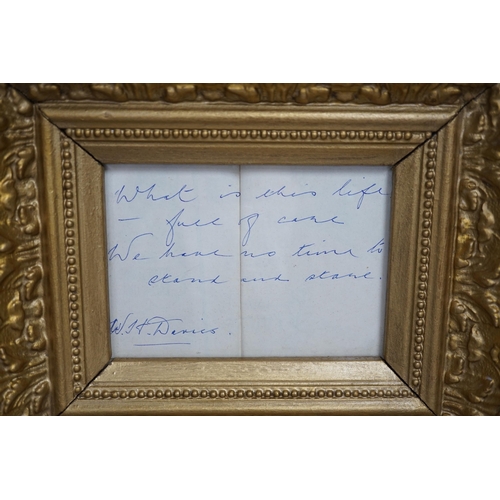 What is this life
— full of care
We have no time to
stand and stare.
W. H. Davies.